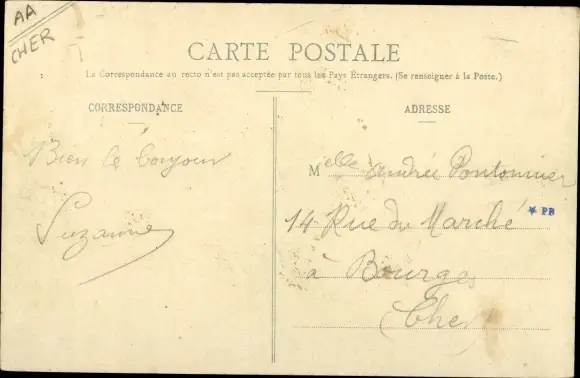 AA
CHER
CARTE POSTALE
La Correspondance au recto n'est pas acceptée par tous les Pays Étrangers. (Se renseigner à la Poste.)
CORRESPONDANCE
Bien le bonjour
Suzanne
ADRESSE
Melle Andrée Pontonnier
14 Rue du Marché
* PB
à Bourges
(Cher)